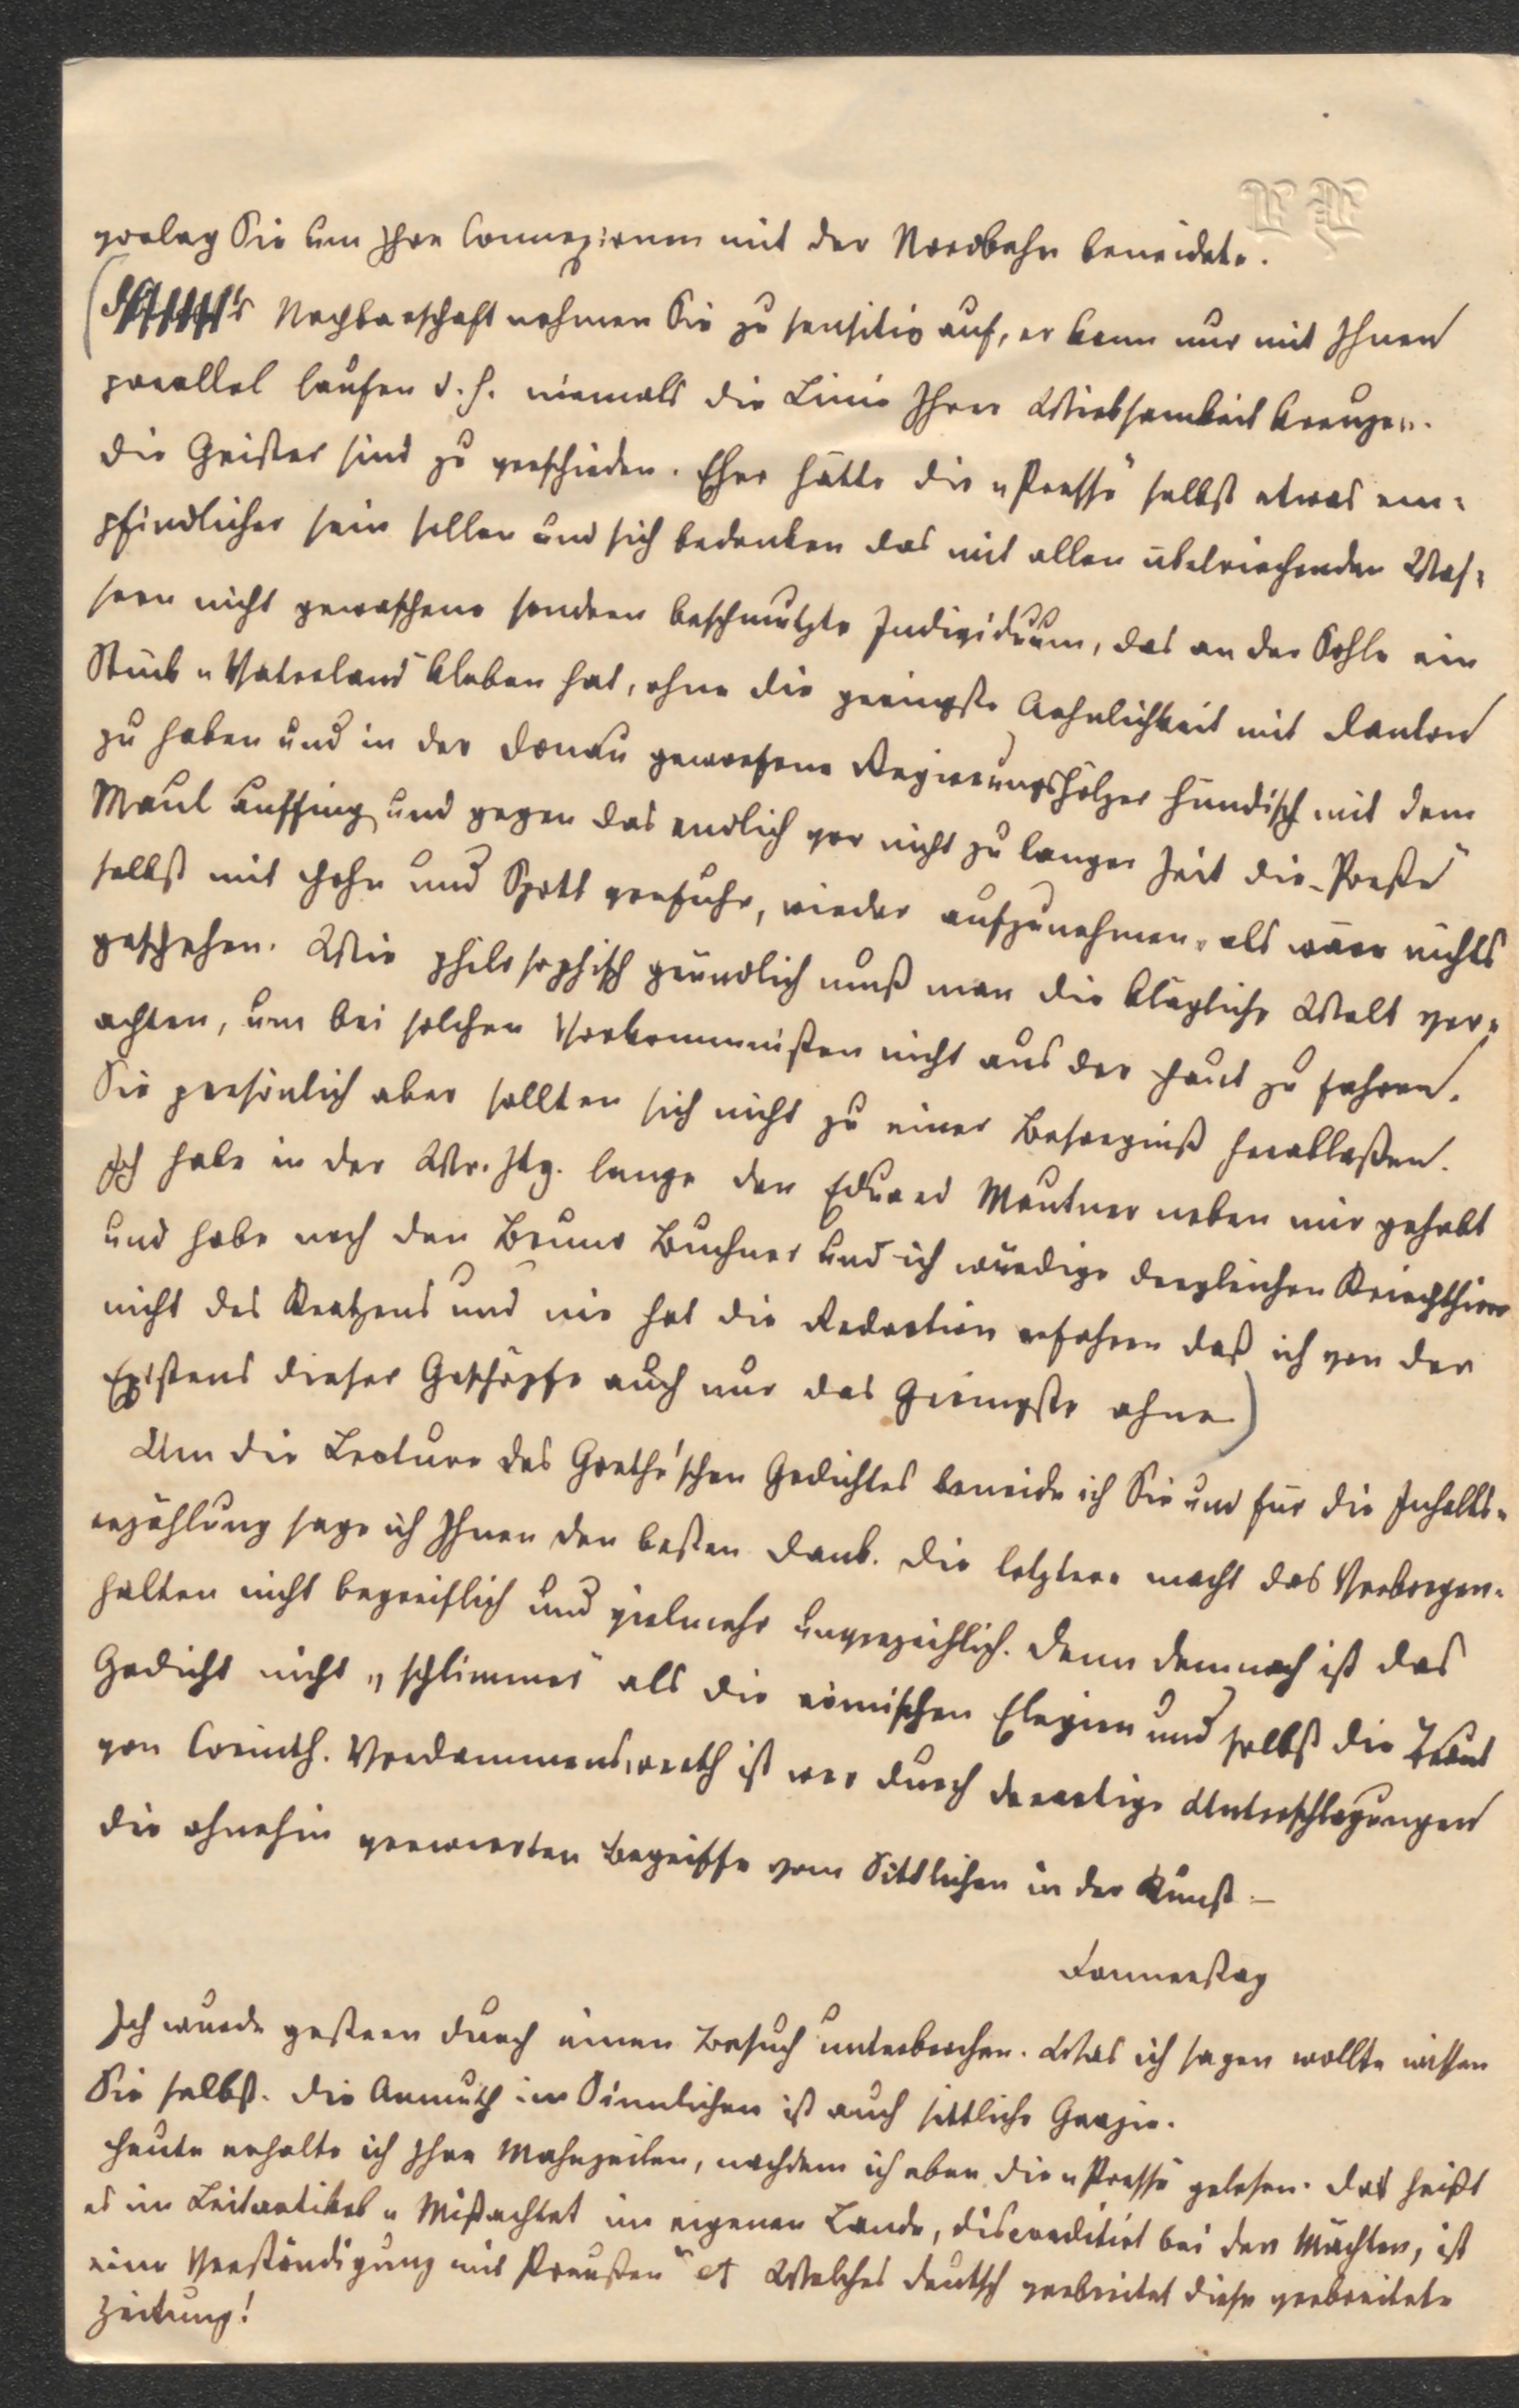 verlag Sie um Ihre Connexionen mit der Nordbahn beneidete.
Nachbarschaft nehmen Sie zu sensitiv auf, er kann nur mit Ihnen
parallel laufen d. h. niemals die Linie Ihrer Wirksamkeit kreuzen.
die Geister sind zu verschieden. Eher hätte die „Presse“ selbst etwas em-
pfindlicher sein sollen und sich bedenken das mit allen übelriechenden Was-
sern nicht gewaschene sondern beschmutzte Individuum, das an der Sohle ein
Stück „Vaterland“ kleben hat, ohne die geringste Aehnlichkeit mit Danton
zu haben und in der Donau geworfene Regierungshölzer hündisch mit dem
Maul auffing und gegen das endlich vor nicht zu langer Zeit die „Preße“
selbst mit Hohn und Spott verfuhr, wieder aufzunehmen, als wäre nichts
geschehen. Wie philosophisch gründlich muß man die klägliche Welt ver-
achten, um bei solchen Vorkommnißen nicht aus der Haut zu fahren.
Sie persönlich aber sollten sich nicht zu einer Besorgniß herablaßen.
Ich habe in der Wr. Ztg. lange den Eduard Mautner neben mir gehabt
und habe noch den Bruno Buchner und ich würdige dergleichen Kriechthiere
nicht des Kratzens und nie hat die Redaction erfahren daß ich von der
Existens dieser Geschöpfe auch nur das Geringste ahne)
Um die Lecture des Goethe'schen Gedichtes beneide ich Sie und für die Inhalts-
erzählung sage ich Ihnen den besten Dank. Die letztere macht das Verborgen-
halten nicht begreiflich und vielmehr unverzeihlich. Denn demnach ist das
Gedicht nicht „schlimmer“ als die römischen Elegien und selbst die Braut
von Corinth. Verdammenswerth ist wer durch derartige Unterschlagungen
die ohnehin verwirrten Begriffe vom Sittlichen in der Kunst –
Donnerstag
Ich wurde gestern durch einen Besuch unterbrochen. Was ich sagen wollte wissen
Sie selbst. Die Anmuth im Sinnlichen ist auch sittliche Grazie.
Heute erhalte ich Ihre Mahnzeilen, nachdem ich eben die „Presse“ gelesen. Da heißt
es im Leitartikel „Mißachtet im eigenen Lande, discreditirt bei den Mächten, ist
eine Verständigung mit Preußen“ et Welches Deutsch verbreitet diese verbreitete
Zeitung!